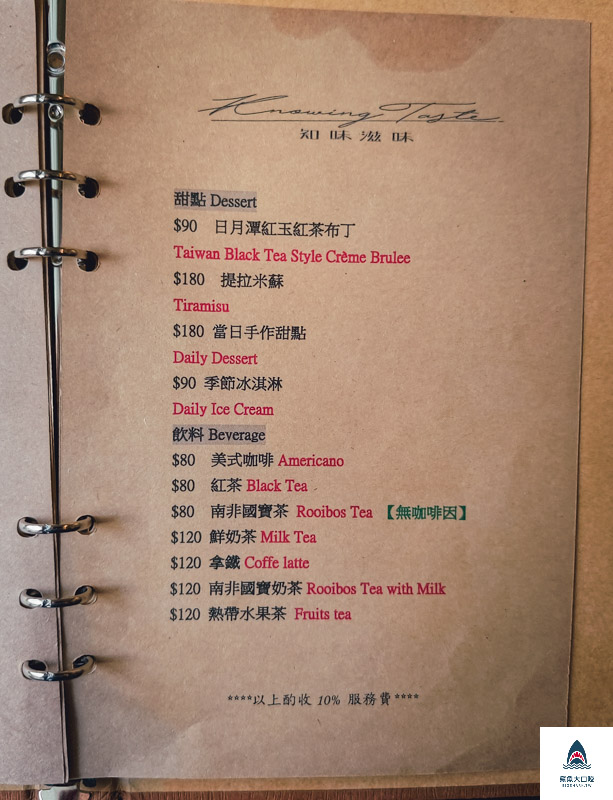 Knowing Taste.
知味滋味
甜點 Dessert
$90 日月潭紅玉紅茶布丁
Taiwan Black Tea Style Crème Brulee
$180 提拉米蘇
Tiramisu
$180 當日手作甜點
Daily Dessert
$90 季節冰淇淋
Daily Ice Cream
飲料 Beverage
$80 美式咖啡 Americano
$80 紅茶 Black Tea
$80 南非國寶茶 Rooibos Tea 【無咖啡因】
$120 鮮奶茶 Milk Tea
$120 拿鐵 Coffe latte
$120 南非國寶奶茶 Rooibos Tea with Milk
$120 熱帶水果茶 Fruits tea
****以上酌收 10% 服務費****
鯊魚大口咬